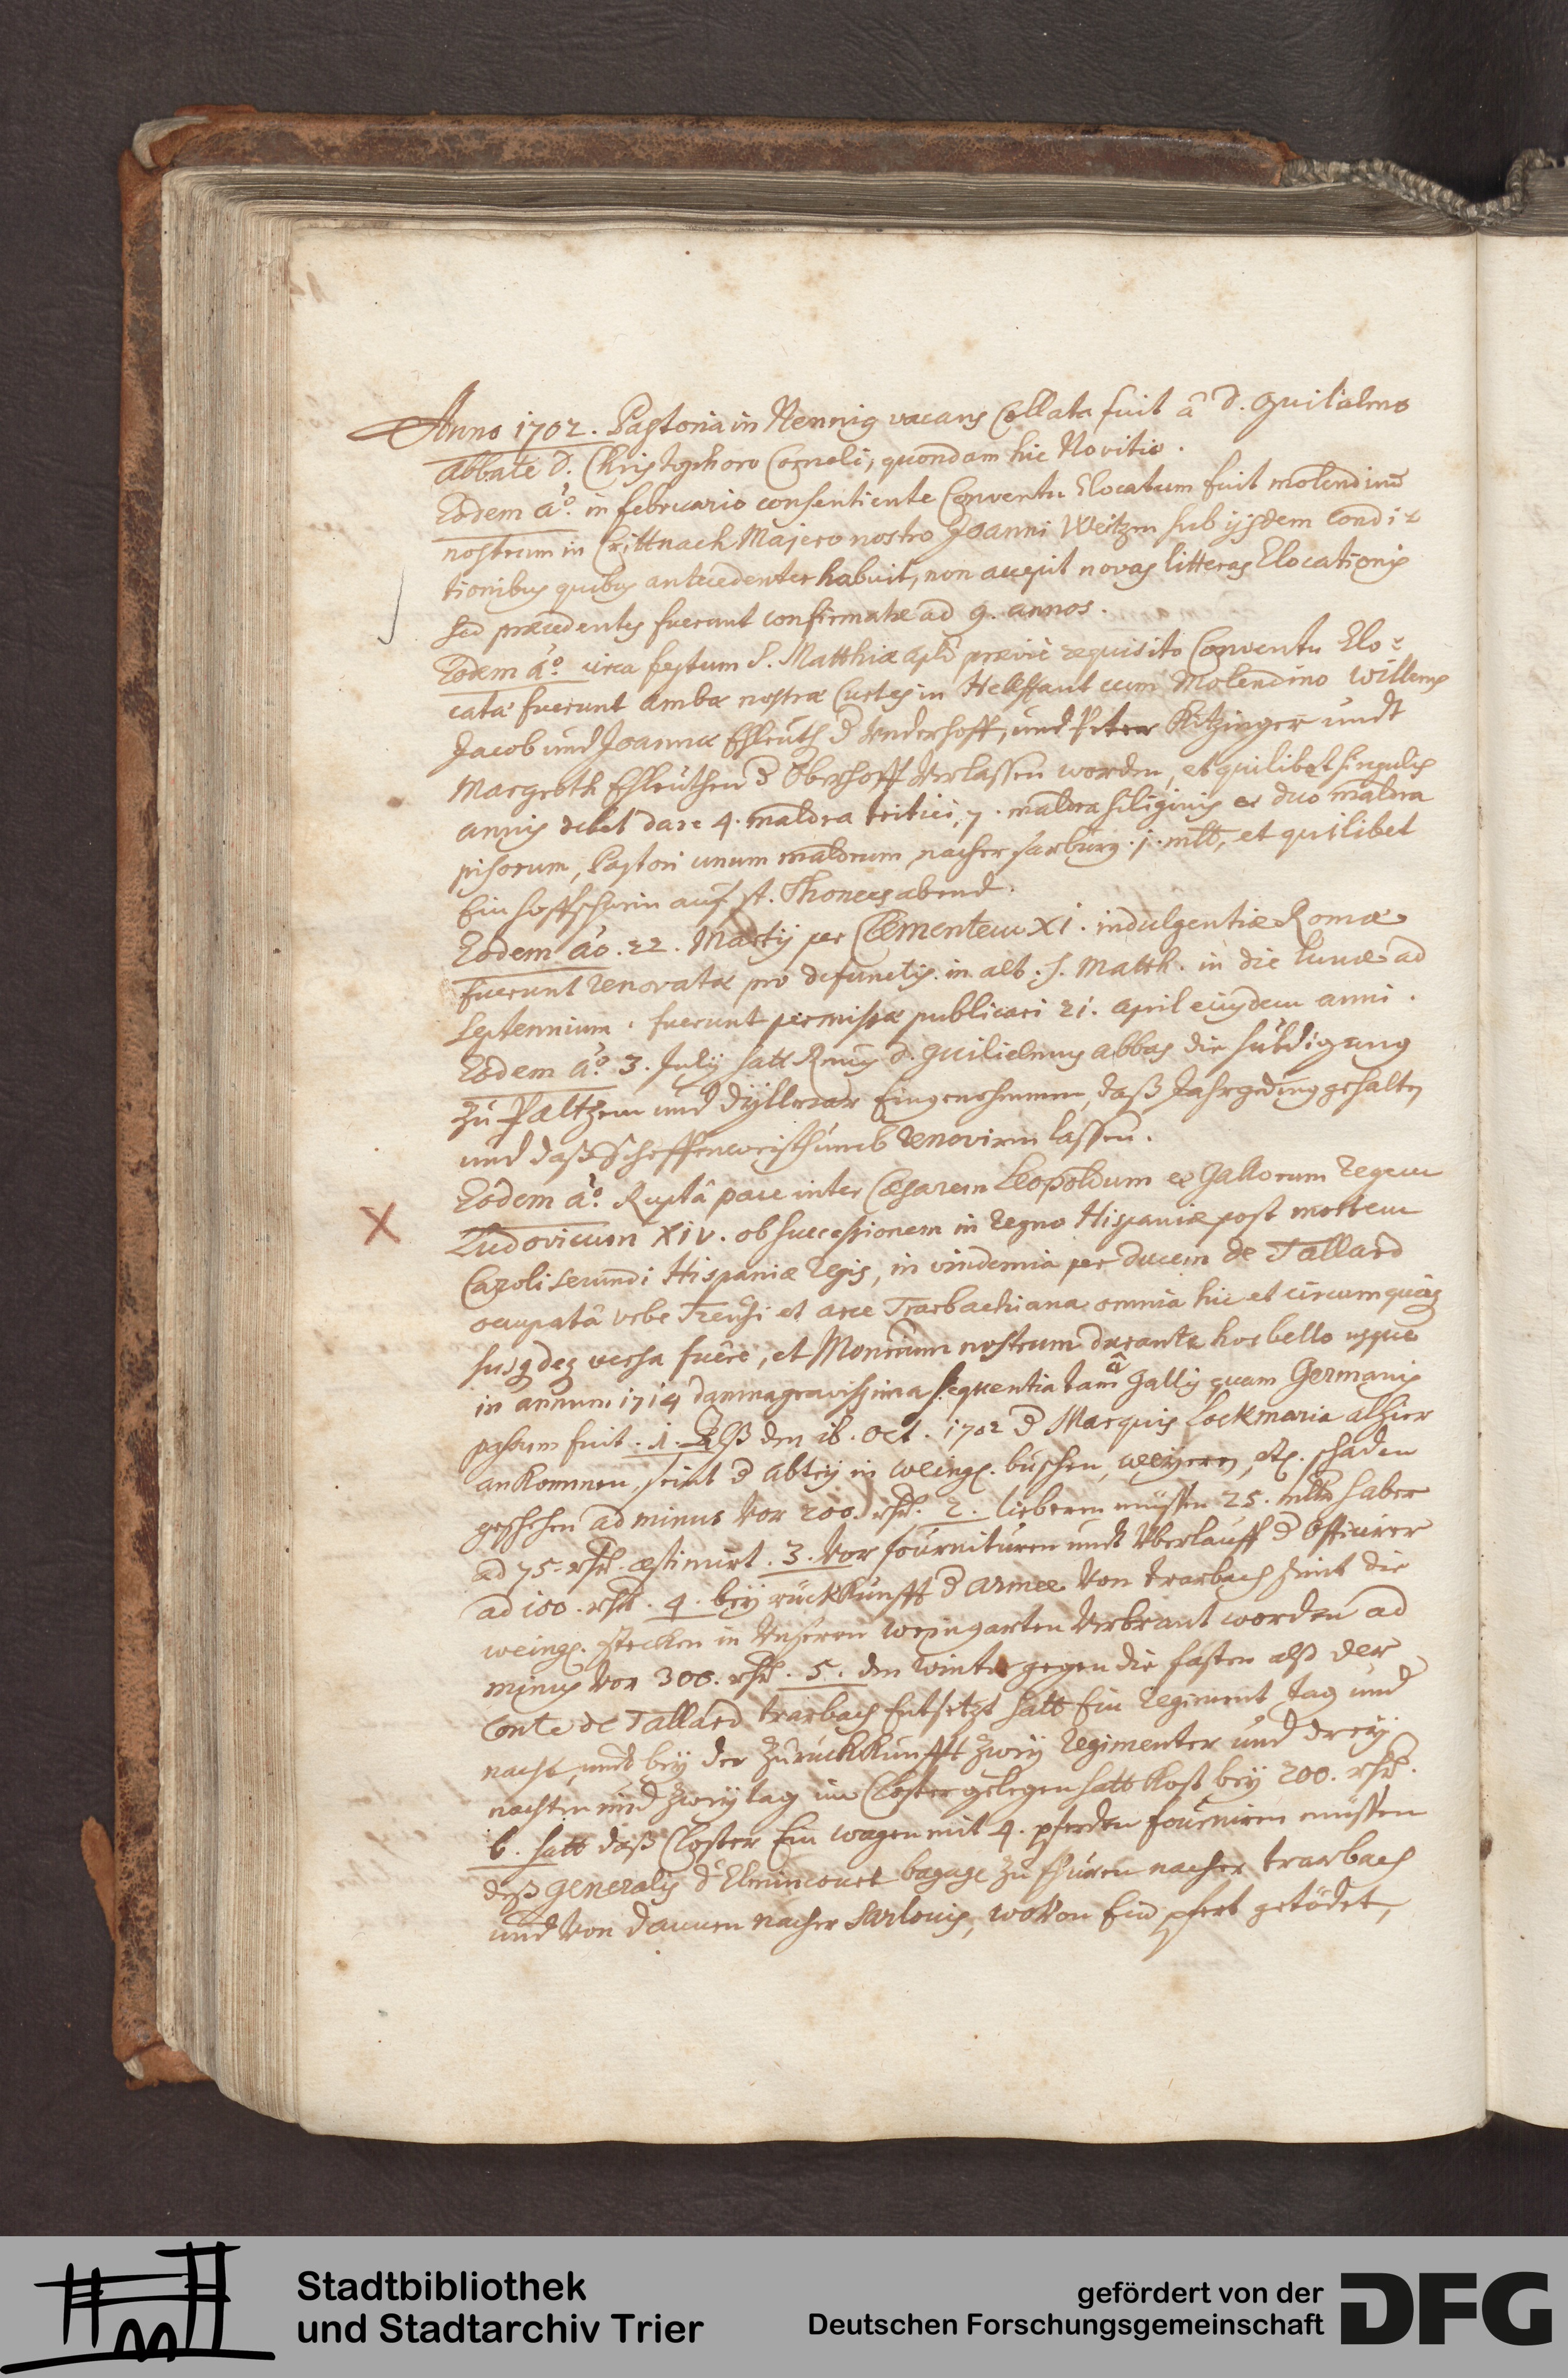 Anno 1702. Pastoria in Nennig vacans Collata fuit â d. Guilielmo
Abbate D. Christophoro Corneli, quondam hic Novitio.
Eodem a͠o. in februario consentiente Conventu Elocatum fuit molendinū
nostrum in Crittnach Majero nostro Joanni Weitzen sub ijsdem Condi-
tionibus quibus antecedenter habuit, non accepit novas litteras Elocationis
sed præcedentes fuerunt confirmatæ ad 9. annos.
Eodem a͠o. circa festum S. Matthiæ apli prævie requisito Conventu Elo-
catæ fuerunt ambæ nostræ Curtes in Helffant cum Molendino Willems
Jacob und Joannæ Ehleuth d Underhoff, und Peter Kitzinger undt
Margreth Ehleuthen d Oberhoff Verlassen worden, et quilibet singulis
annis debet dare 4. maldra tritici, 7. maldra siliginis et duo maldra
pisorum, Pastori unum maldrum, nacher Sarburg. 1. mltr, et quilibet
Ein hoffschwein auf st. Thomasabend.
Eodem a͠o. 22. Martij per Clementem XI. indulgentiæ Romæ
fuerunt renovatæ pro defunctis in alt. S. Matth. in die lunæ ad
septennium. fuerunt permissæ publicari 21. April eiusdem anni.
Eodem a͠o. 3. Julij hatt Rmus d. Guilielmus abbas die huldigung
zu Paltzem und Dyllmar Eingenohmmen, daß Jahrgeding gehalten
und daß Scheffenweisthumb renoviren lassen.
Eodem a͠o. Ruptâ pace inter Cæsarem Leopoldum et Gallorum regem
Ludovicum XIV. ob successionem in regno Hispaniæ post mortem
Caroli secundi Hispaniæ regis, in vindemia per ducem de Tallard
occupatâ urbe Trevirensi et arce Trarbachiana omnia hic et circumquaq
susq deq versa fuêre, et Monrium nostrum durante hoc bello usque
in annum 1714 damna gravissima sequentia tam â Gallis quam Germanis
passum fuit. 1. Alß den 16. Oct. 1702 d Marquis Lockmaria alhier
ankommen, seint d Abtey in weing. buschen, weyern, etc. schaden
geschehen ad minus vor 200. rthr. 2. lieberen müssen 25. mltr haber
ad 75. rthr. æstimirt. 3. Vor fournituren undt Uberlauff d Officirer
ad 100. rthr. 4. bey rückkunfft d Armee von trarbach seint die
weing. stecken in Unseren weingarten Verbrant worden ad
minus vor 300. rthr. 5. den winter gegen die fasten alß der
Conte de Tallard trarbach Entsetzt hatt Ein regiment tag und
nacht, und bey der Zurückkunfft zwey regimenter und drey
nachten und zwey tag im Closter gelegen hatt kost bey 200. rthr.
6. hatt daß Closter Ein wagen mit 4. pferden fourniren müssen
deß generals d'Elmincourt bagage zu führen nacher trarbach
und von dannen nacher Sarlouis, wovon Ein pfert getödet,
Stadtbibliothek
und Stadtarchiv Trier
gefördert von der
Deutschen Forschungsgemeinschaft
DFG